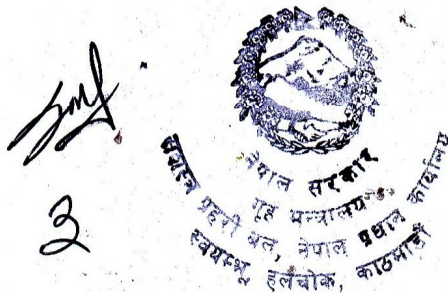 ३
नेपाल सरकार
गृह मन्त्रालय
सशस्त्र प्रहरी बल, नेपाल प्रधान कार्यालय
स्वयम्भू हलचोक, काठमाडौं